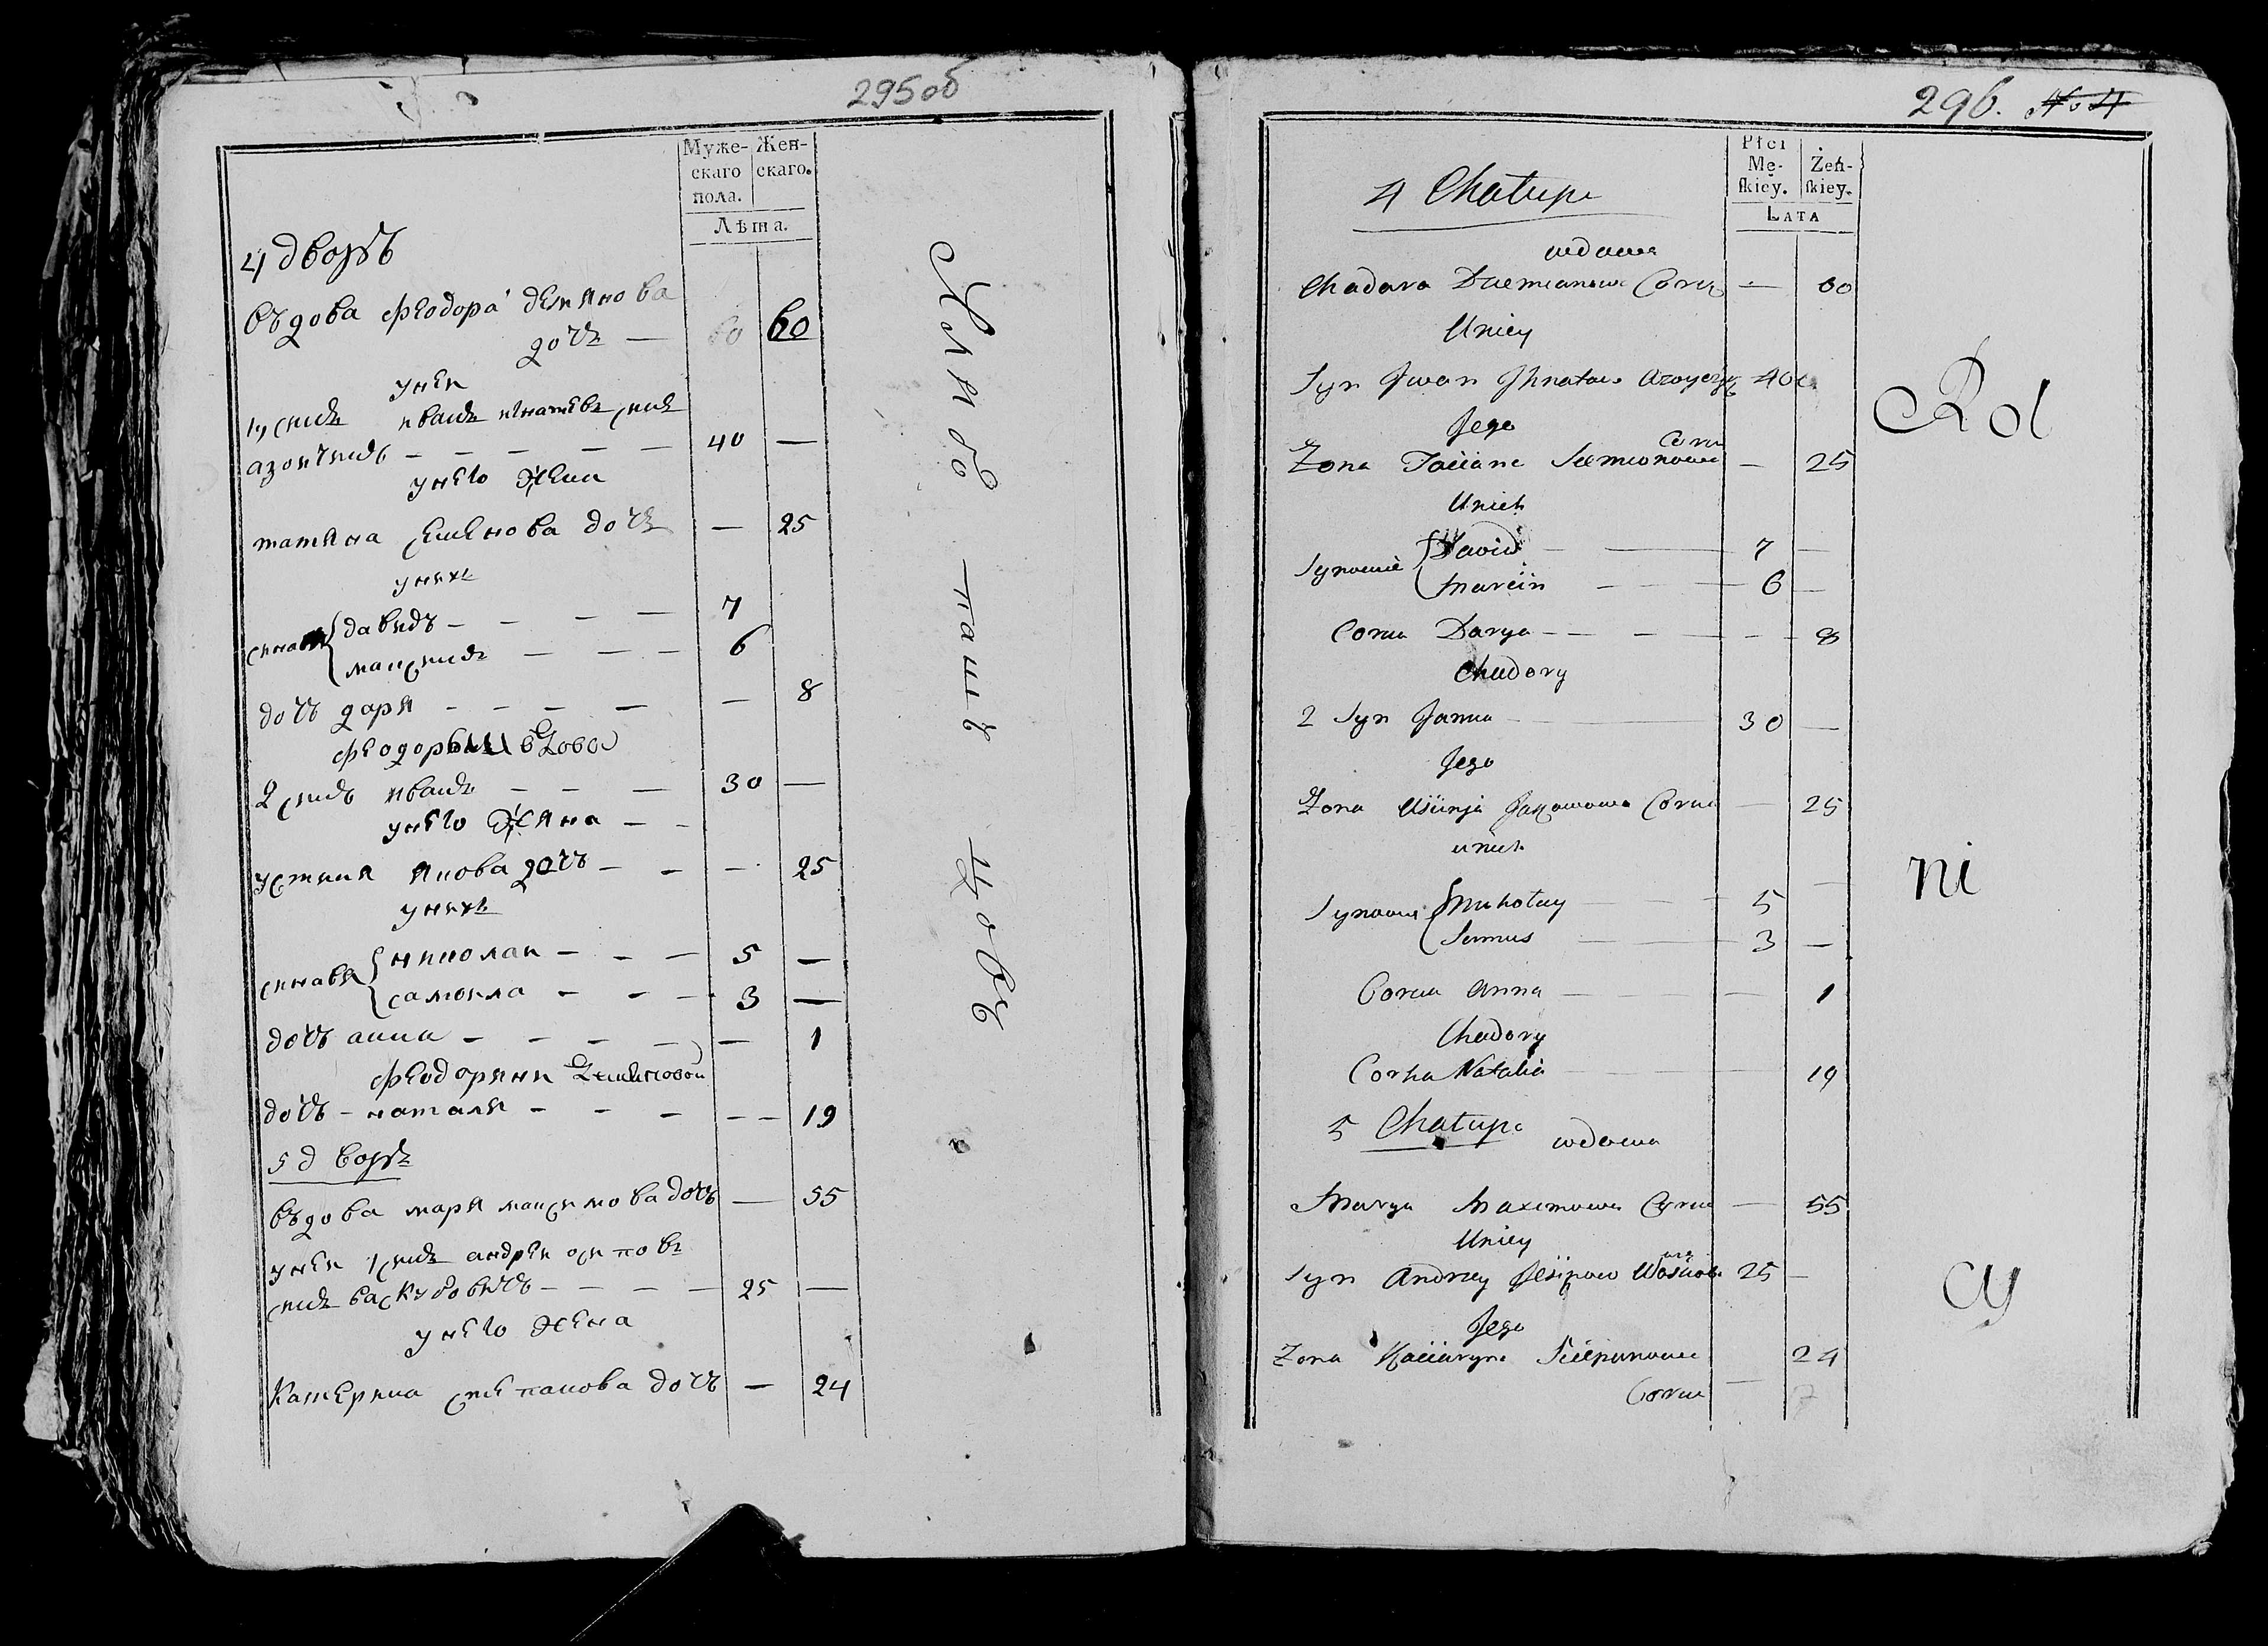 295об
Муже-
скаго
пола.
Жен-
скаго.
Лѣта.
4 дворъ
въдова феодора демянова
дочъ — 60 60
унеи
1 синъ иванъ игнатевъ синъ
азончикъ — — — — — 40 —
унего жена
татяна семенова дочъ — 25
унихъ
синавя давидъ — — — — 7
максимъ — — — — 6
дочъ даря — — — — — 8
феодоры въдовы
2 синъ иванъ — — — 30 —
унего жена — —
устиния якова дочъ — — — 25
унихъ
синавя николаи — — — 5 —
самоила — — — 3 —
дочъ анна — — — — — 1
феодорини
дочъ — наталя — — — — — 19
5 дворъ
въдова маря максимова дочъ — 55
унеи 1 синъ андреи осиповъ
синъ васкудовичъ — — — — 25 —
унего жена
Катерина степанова дочъ — 24
296. No 4
Płci
Mę-
ſkiey.
Żeń-
ſkiey.
Lata
4 Chałupa
wdowa
Chadora Dziemianowa Corka — 60
Uniey
Syn Jwan Jhnatow 40
Jego
Corka
Zona Taciana Siemionowa — 25
Unich
Synowie Dawid — — 7 —
Marcin — — — 6 —
Corka Darya — — — — — 8
Chadory
2 Syn Janka — — 30 —
Jego
Zona Uścinja Jakowowa Corka — 25
unich
Synowie Mikołay — — 5 —
— — 3 —
Corka Anna — — 1
Chadory
Corka Natalia — 19
5 Chałupa wdowa
Marya Maximowa Corka — 55
Uniey
Syn Andrzey Jesipow 25 —
Jego
Zona Kaciaryna Sciepanowa 24
Corka —
Rol
ni
cy